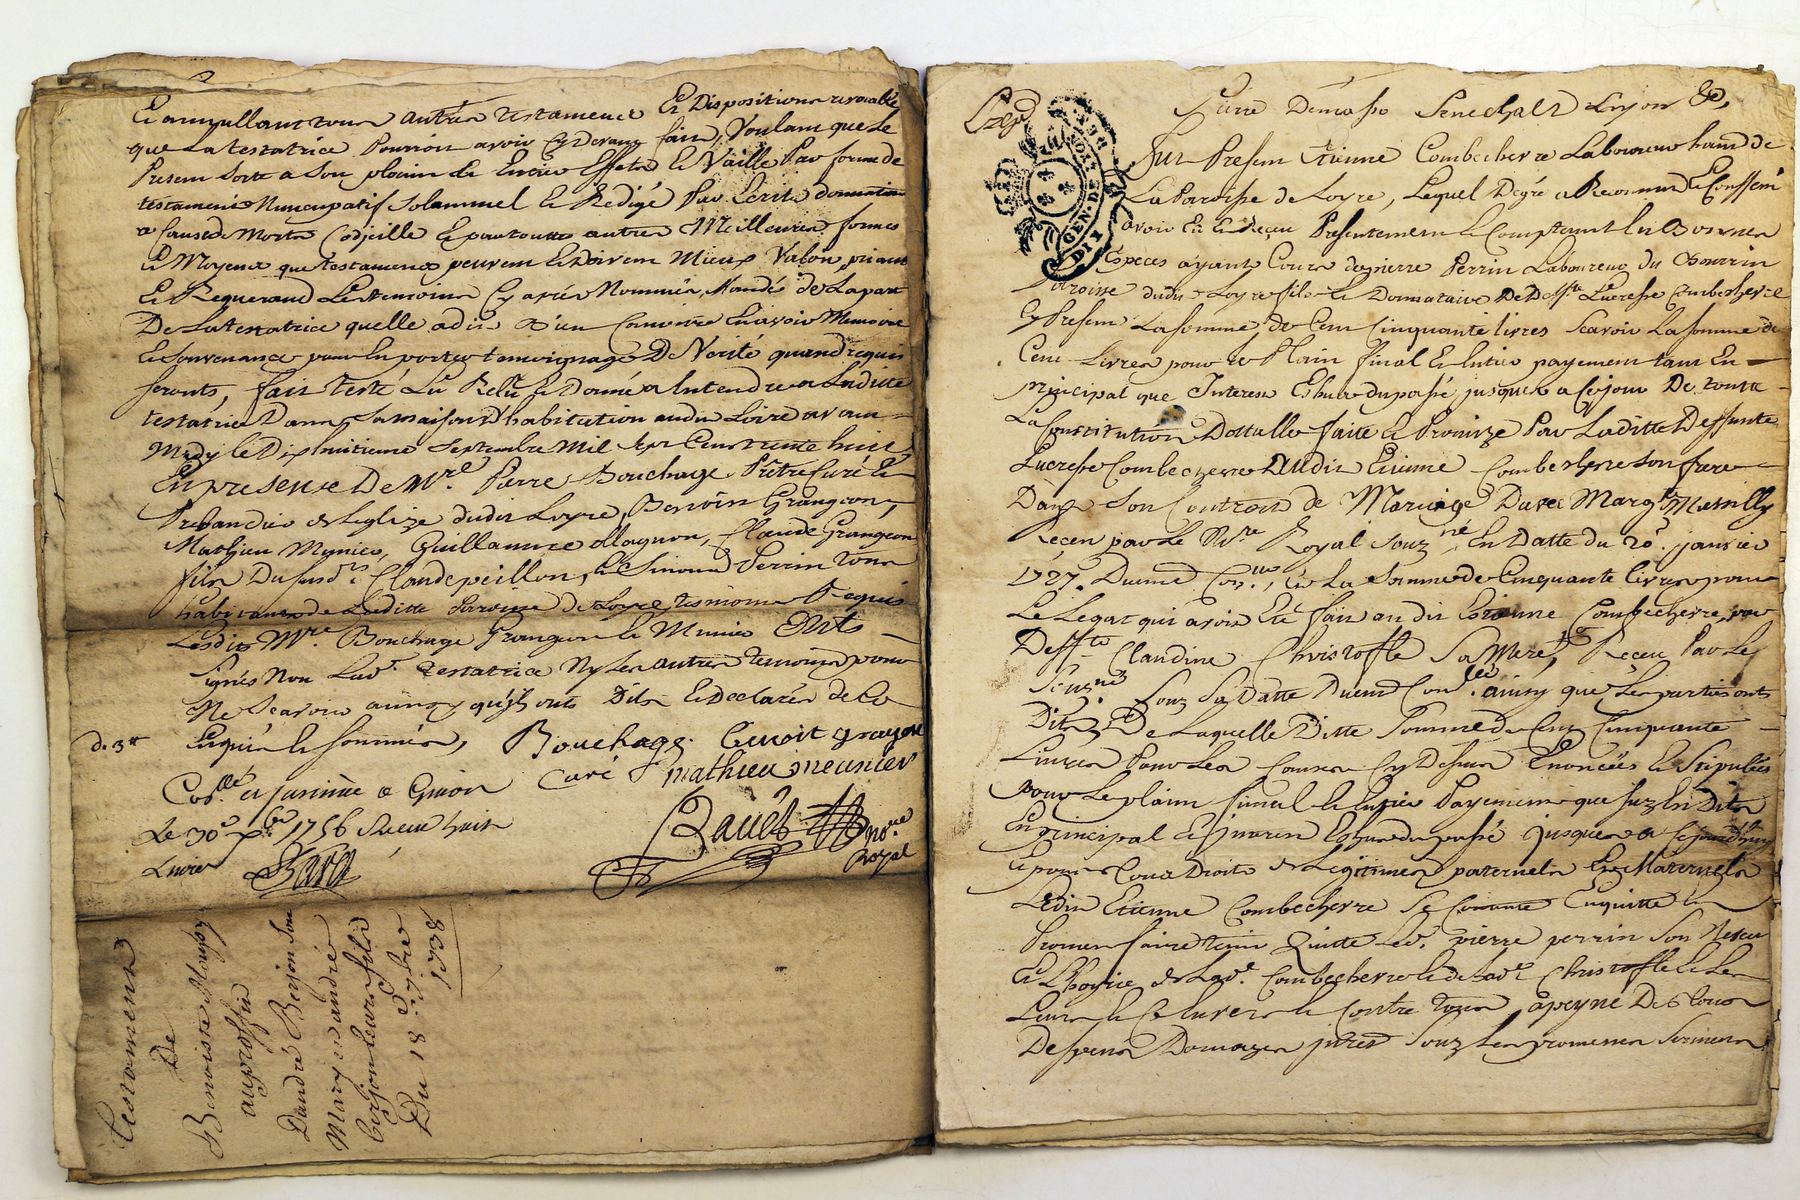 Et annullant tous autres testament Et Dispositions revocable
que La testatrice Pourroit avoir cy Devant fait, Voulant que Le
Present sorte a son plain Et Entier Effet & Vaille Par forme de
testament Nuncupatif solemnel & Redigé Par Ecrits donnation
a Cause de Morts Codicille & par touttes autres Meilleures formes
& Moyens que testaments peuvent Et doivent Mieux Valoir, priant
Et Requerand Les temoins Cy apres Nommés, Mandés de La part
De La testatrice quelle a dit Bien Connoitre En avoir Memoire
& souvenance pour En porter temoignage De Verité quand requis
seronts, fait testé Lu Relu & Donné a Entendre a Laditte
testatrice Dans sa maison d'habitation audit Loire avant
Midy le Dix huitieme Septembre Mil Sept Cent trente huit
En presense De Mre. Pierre Bouchage Prêtre Curé &
Prebandier de Leglize dudit Loyre, Benoist Grangeon,
Mathieu Munier, Guillaumee Magnon, Claude Grangeon
fils Dususd. Claude peillon, & Simond Perrin tous
habitants de Laditte Parroisse de Loyre temoins Requis
Lesdits Mre. Bouchage Grangeon & Munier Onts
signés Non Lad. testatrice Ny Les autres temoins pour
Ne Scavoir ainsy qu'ils onts Dits & Declarés de Ce
Enquis & sommés, Bouchage Benoit
d. 3tt
Curé mathieu meunier
Collé et
Le 30e 1756
Livres
Bavet Nore
Royal
Testament
De
Benoiste
au proffit
Dandré Berjon Son
Mary & andré
Berjon leurs fils
Du 18e 7bre
1738
Pierre Démasso Senechal de Lyon &c,
Fut Present Etienne Combecherre Laboureur habitant de
La Paroisse de Loyre, Lequel De gré a Reconnu & Confessé
avoir Eu & Reçeu Presentement & Comptant En Bonnes
Especes ayant Cours de pierre Perrin Laboureur du
Parroisse dudit Loyre fils & Donnataire De Deffte Lucresse Combecherre
Cy Present La somme de Cent Cinquante livres Scavoir La somme de
Cent Livres pour Le Plain final & Entier payement tant En
principal que Interest Eschus du passé jusques a Cejour De toutte
La Constitution Dottalle faitte & Promize Par Laditte Deffunte
Lucresse Combecherre Audit Etienne Combecherre son frere
Dans son Contract de Mariage Davec Margte
Receu par Le Nore Royal souzné En Datte du 20e janvier
1727. Duement Conllé, & La somme de Cinquante livres pour
Le Legat qui avoit Eté fait audit Etienne Combecherre, par
Deffte Claudine Christoffle Sa Mere, Reçeu Par Le
Souzné Souz Sa Datte Duement Conllé ainsy que Les parties onts
Dits, De Laquelle Ditte Somme de Cent Cinquante
Livres Pour Les Causes Cy Dessus Enoncées & Stipulées
pour Le plain final & Entier Payement que Suz Est Dit
En principal & Interest Eschus du passé jusques a Cejourd'huy
& pour tous Droits de Legitimes paternels & Maternels
Ledit Etienne Combecherre Se Contante Enquitte &
Promet faire tenir Quitte Led. pierre perrin Son Neveu
Et L'hoyrie de Lad. Combecherre & de Lad. Christoffle & Les
Leurs & Ce Envers & Contre tous apeyne De tous
Depens Domages jurés Souz Les promesses Soumissions
GEN. DE LYON
DII